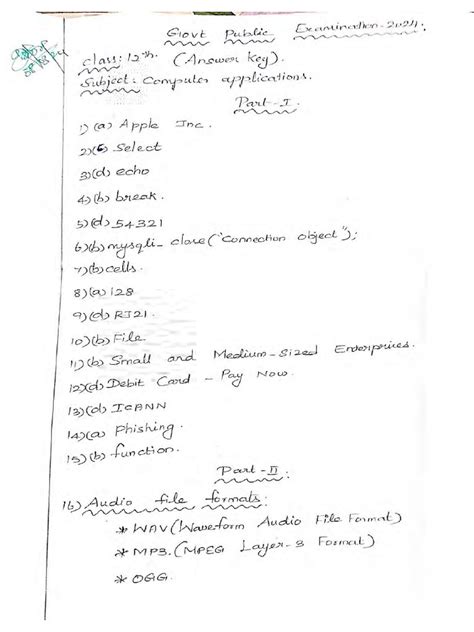 Govt Public Examination-2024.
Class: 12th. (Answer Key).
Subject: Computer applications.
Part-I.
1) (a) Apple Inc.
2) (c) Select
3) (d) echo
4) (b) break.
5) (d) 54321
6) (b) mysqli_close("Connection object");
7) (b) cells.
8) (a) 128
9) (d) RJ21.
10) (b) File
11) (b) Small and Medium-Sized Enterprises.
12) (d) Debit Card - Pay Now.
13) (d) ICANN
14) (a) Phishing.
15) (b) function.
Part-II:
16) Audio file formats:
* WAV (Waveform Audio File Format)
* MP3. (MPEG Layer-3 Format)
* OGG.